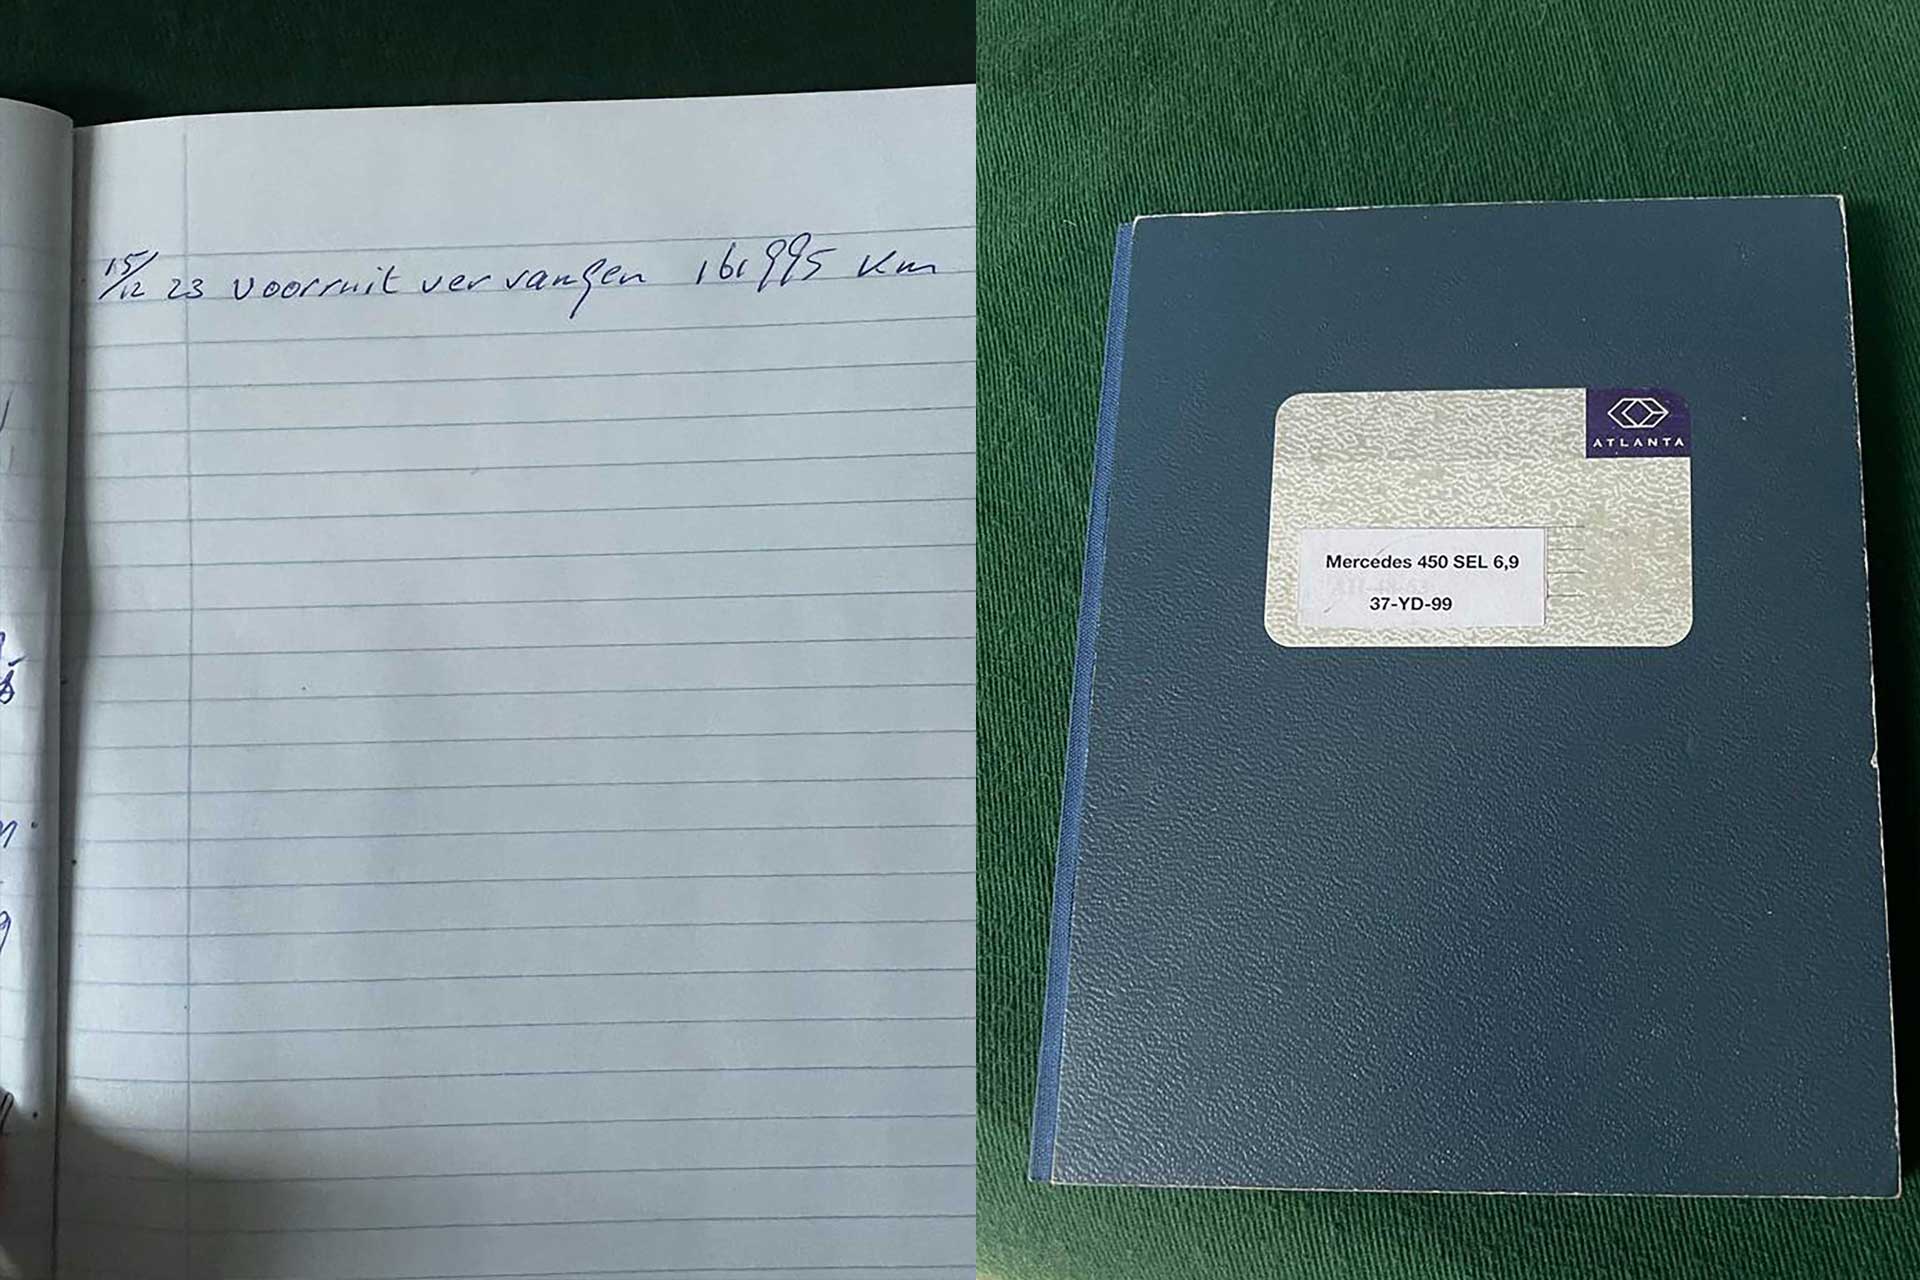 15/12 23 voorruit vervangen 161995 km
ATLANTA
Mercedes 450 SEL 6,9
37-YD-99